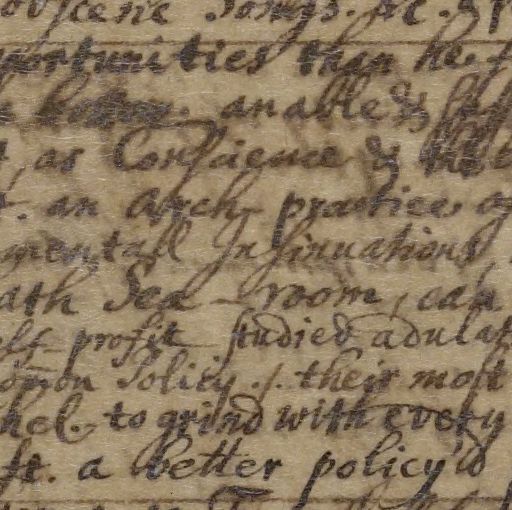 obscene Songs. &c.
portunities than he
an able &
as Conscience &
an arch practice of
mentall Insinuations
ath Sea-room, can
profit studied adulat
om̄on Policy. their most
hel to grind with every
ft. a better policy'd